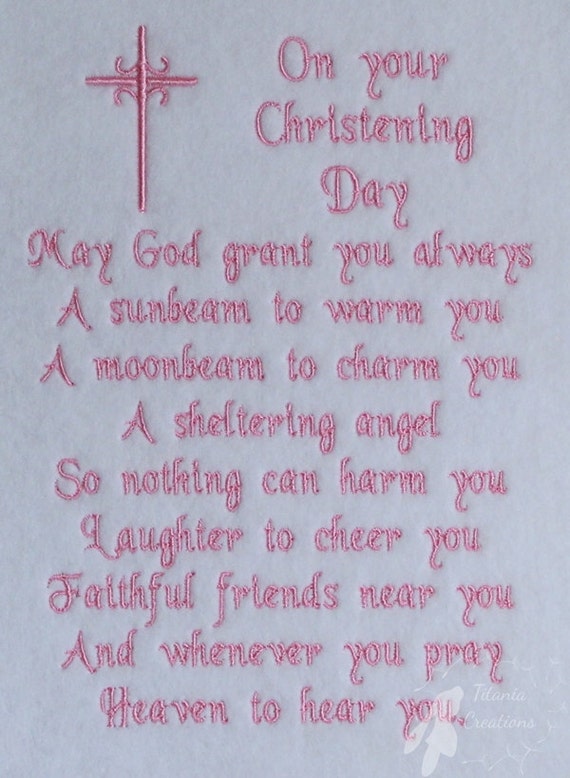 On your
Christening
Day
May God grant you always
A sunbeam to warm you
A moonbeam to charm you
A sheltering angel
So nothing can harm you
Laughter to cheer you
Faithful friends near you
And whenever you pray
Heaven to hear you.
Titania
Creations